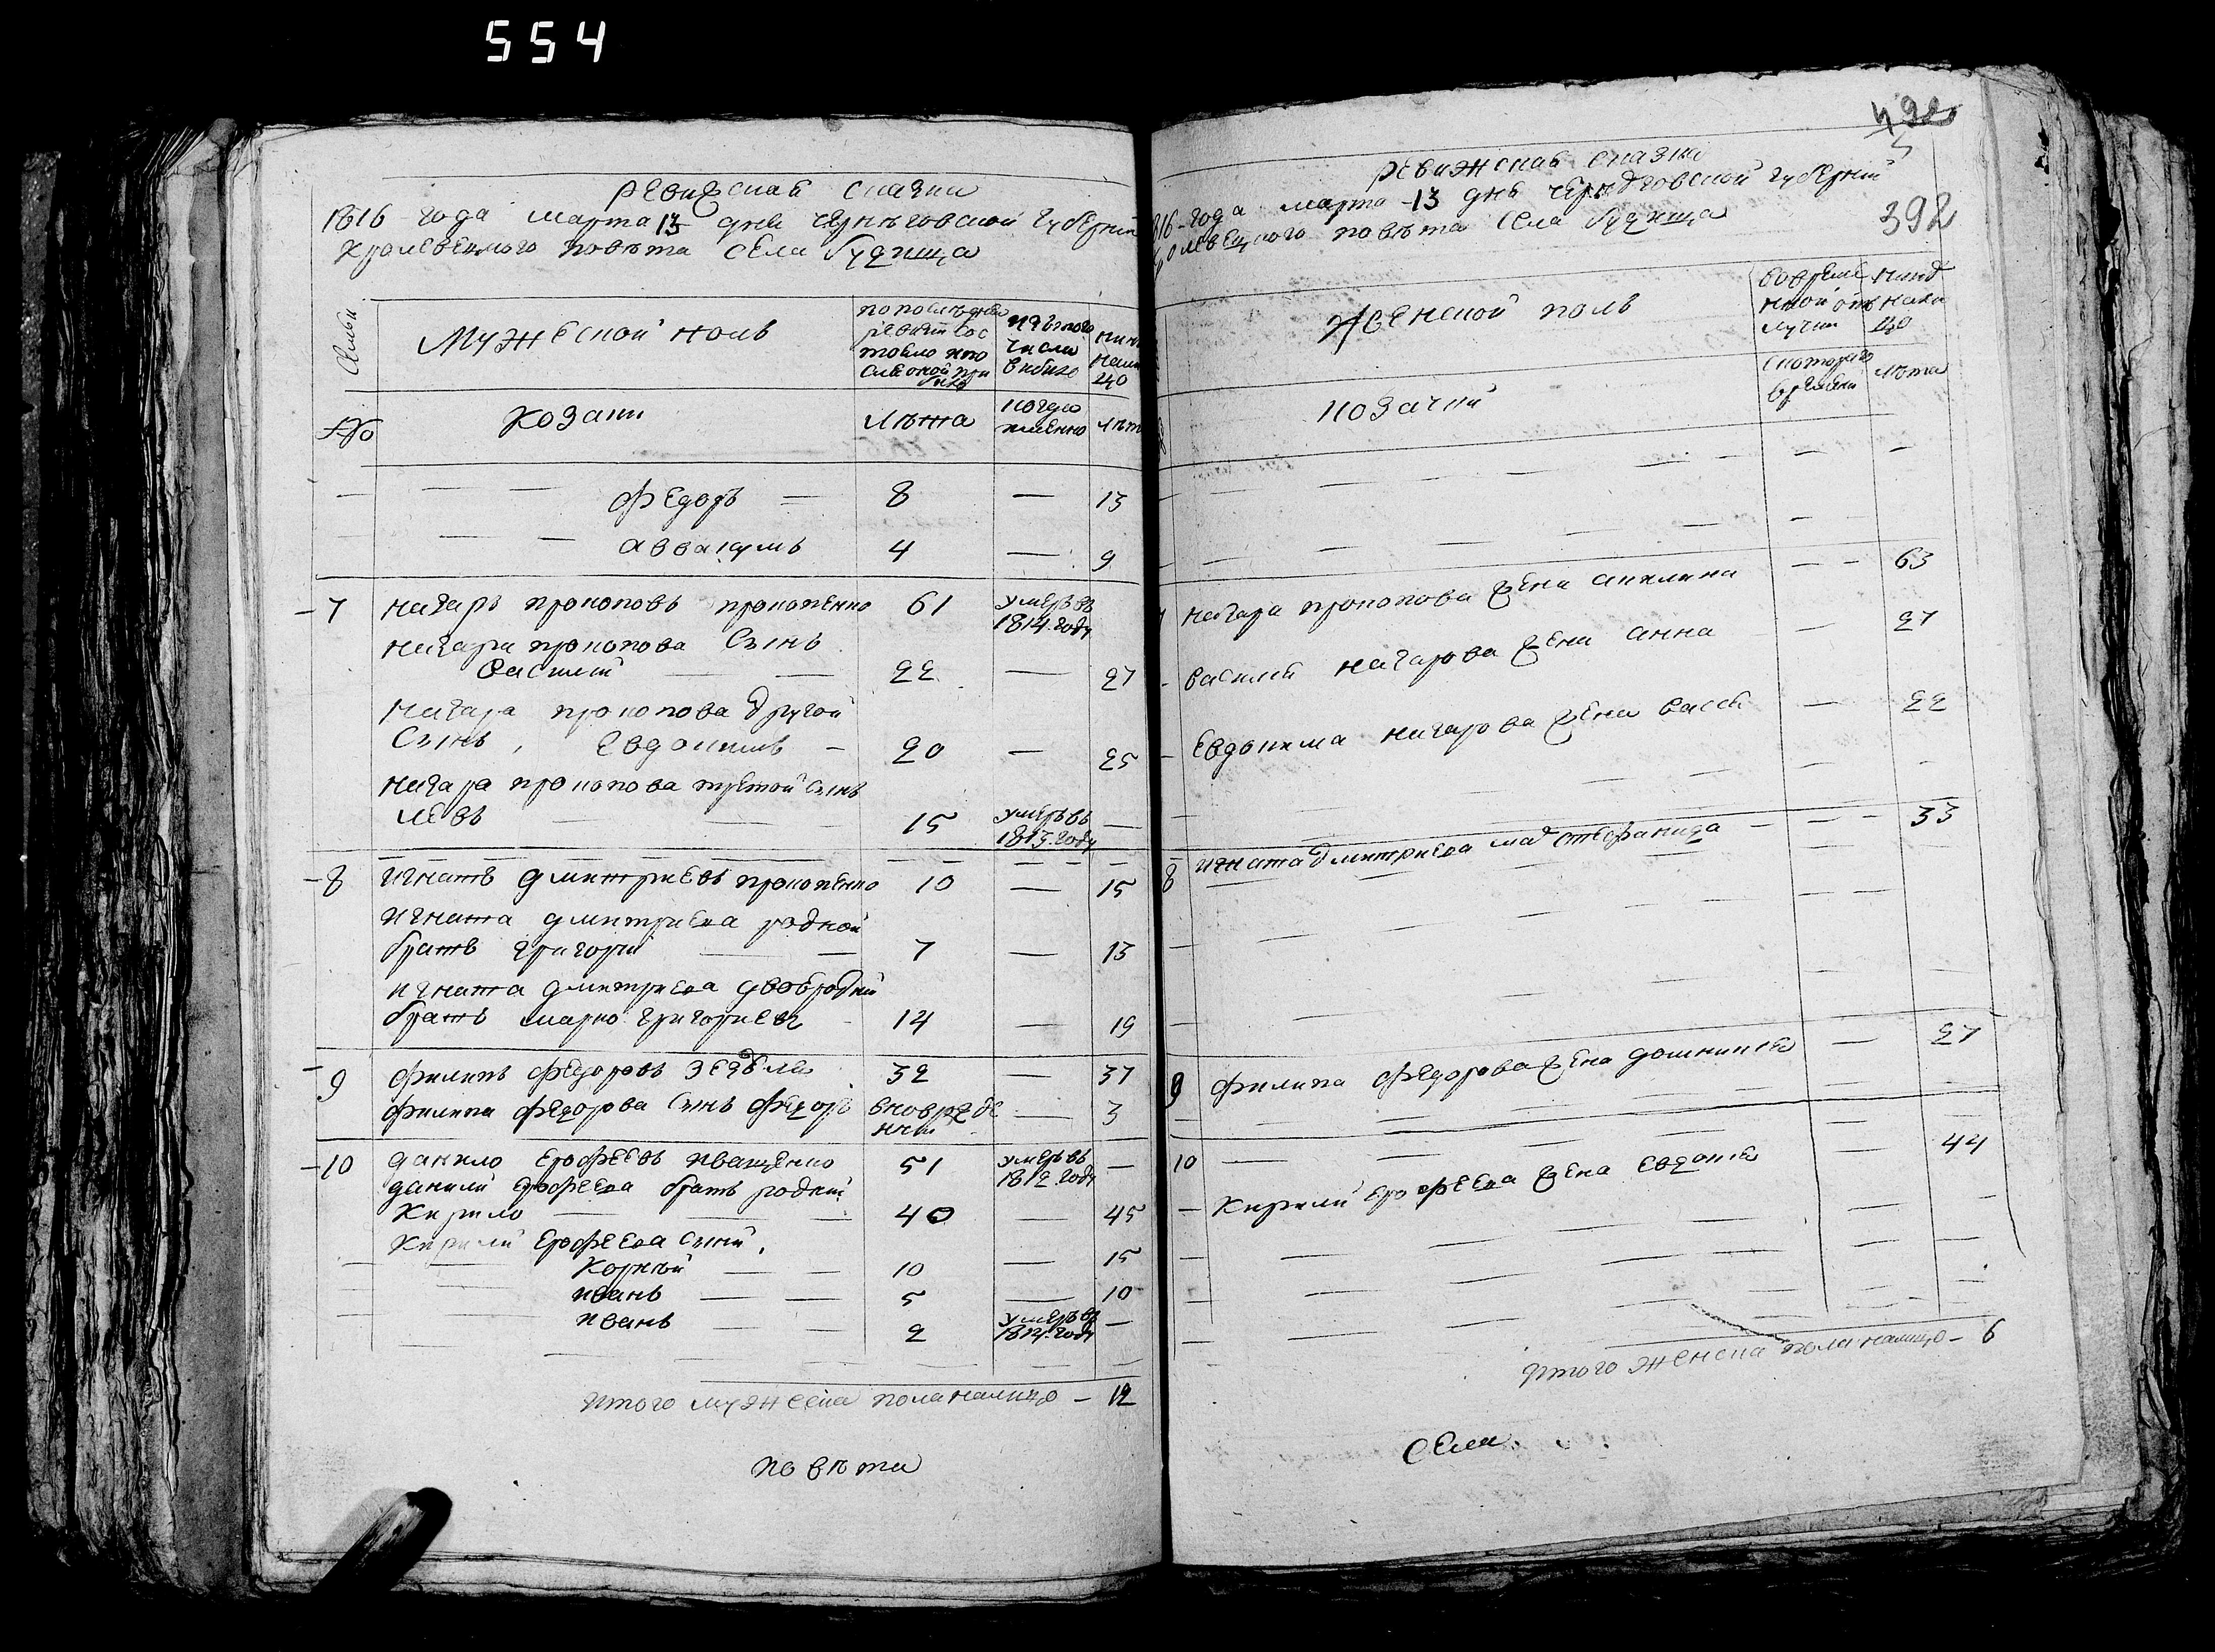 554
ревизская сказка
1816 года марта 13 дня черниговской губернии
кролевецкого повета села Гудища
Семьи
Мужеской полъ
по последней ревизии состояло и по оной при
изъ того числа выбыло
ныне на лицо
№
козаки
лета
когда именно
лет
Федоръ — 8 — 13
аввакумъ 4 — 9
7 прокоповъ прокопенко 61 умеръ въ 1814. году
прокопова Сынъ
Василий — 22 — 27
прокопова другой
Сынъ, Евдокимъ — 20 — 25
прокопова третой Сынъ
левъ — 15 умеръ въ 1813. году —
8 игнатъ дмитриевъ прокопенко 10 — 15
игната дмитриева родной
братъ григорий — 7 — 13
игната дмитриева двобродний
братъ марко григориевъ 14 — 19
9 филипъ федоровъ 32 — 37
филипа федорова Сынъ федоръ — 3
10 данило ерофеевъ иващенко 51 умеръ въ 1812. году —
данили ерофеева братъ родний
Кирило — 40 — 45
Кирили ерофеева Сыни,
Корней — 10 — 15
иванъ — 5 — 10
иванъ 2 умеръ въ 1814. году —
итого мужеска пола налицо — 12
повета
492
392
ревижская сказка
1816 года марта 13 дня черниговской губернии
кролевецкого повета села Гудища
Женской полъ
во временной отлучки
ныне на лицо
с которого времени
лета
козачки
прокопова жена акилина — 63
василия жена анна — 27
Евдокима жена васса — 22
8 игната дмитриева мат стефанида — 33
9 филипа федорова жена домникия — 27
10
Кирили ерофеева жена евдокия 44
итого женска пола налицо — 6
села